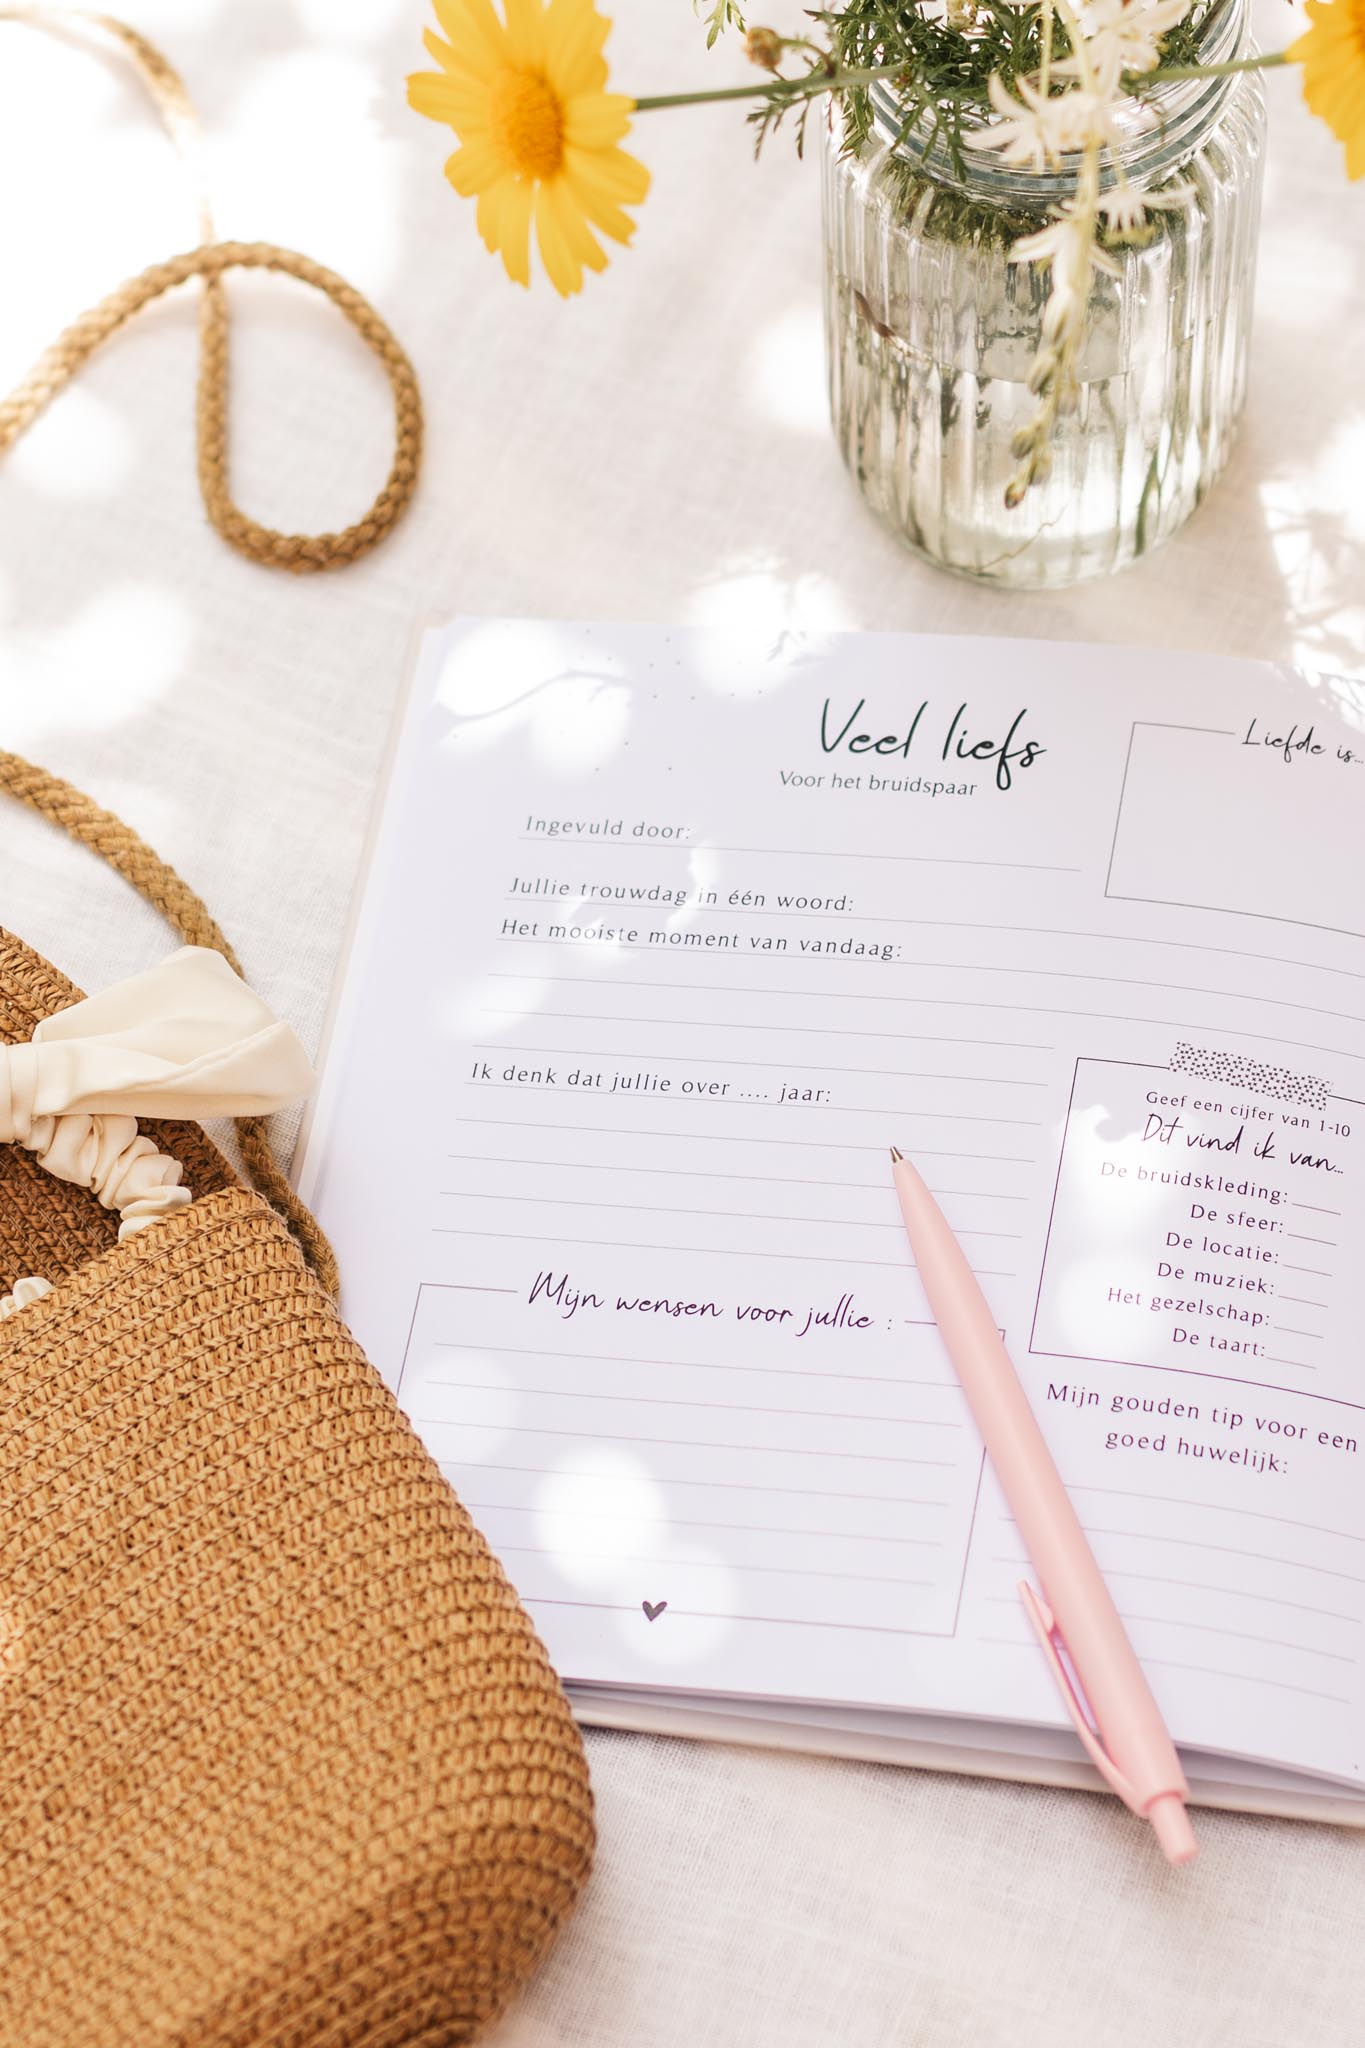 Veel liefs
Voor het bruidspaar
Liefde is...
Ingevuld door:
Jullie trouwdag in één woord:
Het mooiste moment van vandaag:
Ik denk dat jullie over .... jaar:
Geef een cijfer van 1-10
Dit vind ik van...
De bruidskleding:
De sfeer:
De locatie:
De muziek:
Het gezelschap:
De taart:
Mijn wensen voor jullie :
Mijn gouden tip voor een
goed huwelijk: